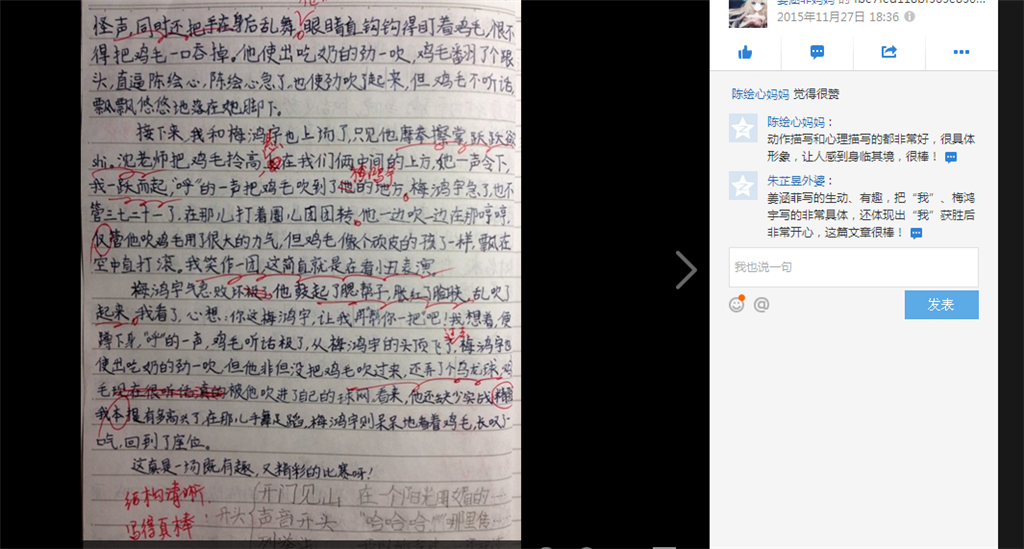 怪声,同时还把手在身后乱舞,眼睛直钩钩得盯着鸡毛,恨不
得把鸡毛一口吞掉。他使出吃奶的劲一吹,鸡毛翻了个跟
头,直逼陈绘心,陈绘心急了,也使劲吹了起来,但鸡毛不听话,
飘飘悠悠地落在她脚下。
接下来,我和梅鸿宇也上场了,只见他摩拳擦掌,跃跃欲
shi。沈老师把鸡毛拎高,在我们俩中间的上方,她一声令下,
我一跃而起,"呼"的一声把鸡毛吹到了他的地方。梅鸿宇急了,也不
管三七二十一了,在那儿打着圈儿团团转。他一边吹一边在那哼哼,
仅管他吹鸡毛用了很大的力气,但鸡毛像个顽皮的孩子一样,飘在
空中直打滚。我笑作一团,这简直就是在看小丑表演。
梅鸿宇气急败坏,他鼓起了腮帮子,胀红了脸快,乱吹了
起来。我看了,心想:你这梅鸿宇,让我再"帮你一把"吧!我想着,便
蹲下身,"呼"的一声,鸡毛听话极了,从梅鸿宇的头顶飞了,梅鸿宇也
使出吃奶的劲一吹,但他非但没把鸡毛吹过来,还弄了个乌龙球,鸡
毛现在很听话真的被他吹进了自己的球网。看来,他还缺少实战
我本提有多高兴了,在那儿手舞足蹈,梅鸿宇则呆呆地看着鸡毛,长叹了
口气,回到了座位。
这真是一场既有趣,又精彩的比赛呀!
结构清晰
写得真棒
开头
开门见山 在一个阳光明媚的
声音开头 "哈哈哈!"哪里传
2015年11月27日 18:36
陈绘心妈妈 觉得很赞
陈绘心妈妈:
动作描写和心理描写的都非常好,很具体
形象,让人感到身临其境,很棒!
朱芷昱外婆:
姜涵菲写的生动、有趣,把“我”、梅鸿
宇写的非常具体,还体现出“我”获胜后
非常开心,这篇文章很棒!
我也说一句
发表